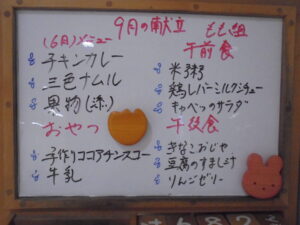 9月の献立
もも組
(6日)メニュー
チキンカレー
三色ナムル
果物(漆)
おやつ
手作りココアチンスコー
牛乳
午前食
米粥
鶏レバーミルクシチュー
キャベツのサラダ
午後食
きなこおじや
豆腐のすまし汁
りんごゼリー